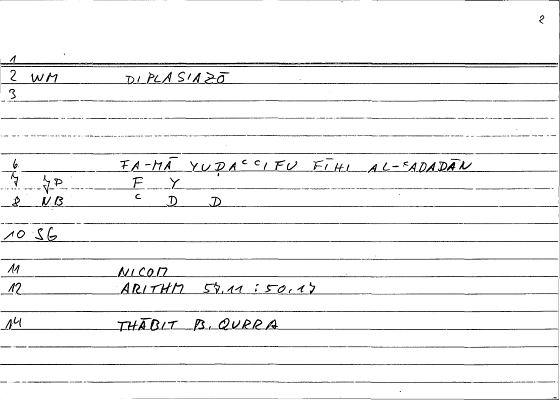 2
1
2 WM DIPLASIAZŌ
3
6 FA-MĀ YUḌAᶜᶜIFU FĪHI AL-ᶜADADĀN
7 7P F Y
8 NB ᶜ D D
10 SG
11 NICOM
12 ARITHM 57.11 : 50.17
14 THĀBIT B. QURRA